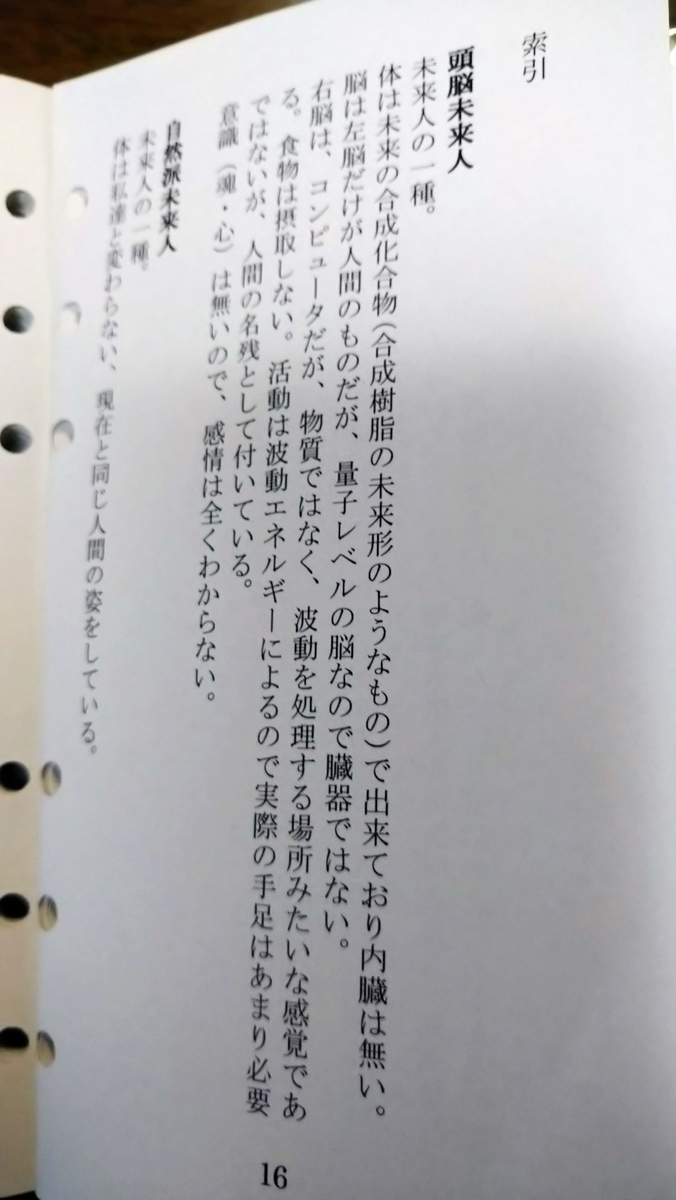 索引
頭脳未来人
未来人の一種。
体は未来の合成化合物(合成樹脂の未来形のようなもの)で出来ており内臓は無い。
脳は左脳だけが人間のものだが、量子レベルの脳なので臓器ではない。
右脳は、コンピュータだが、物質ではなく、波動を処理する場所みたいな感覚であ
る。食物は摂取しない。活動は波動エネルギーによるので実際の手足はあまり必要
ではないが、人間の名残として付いている。
意識(魂・心)は無いので、感情は全くわからない。
自然派未来人
未来人の一種。
体は私達と変わらない、現在と同じ人間の姿をしている。
16